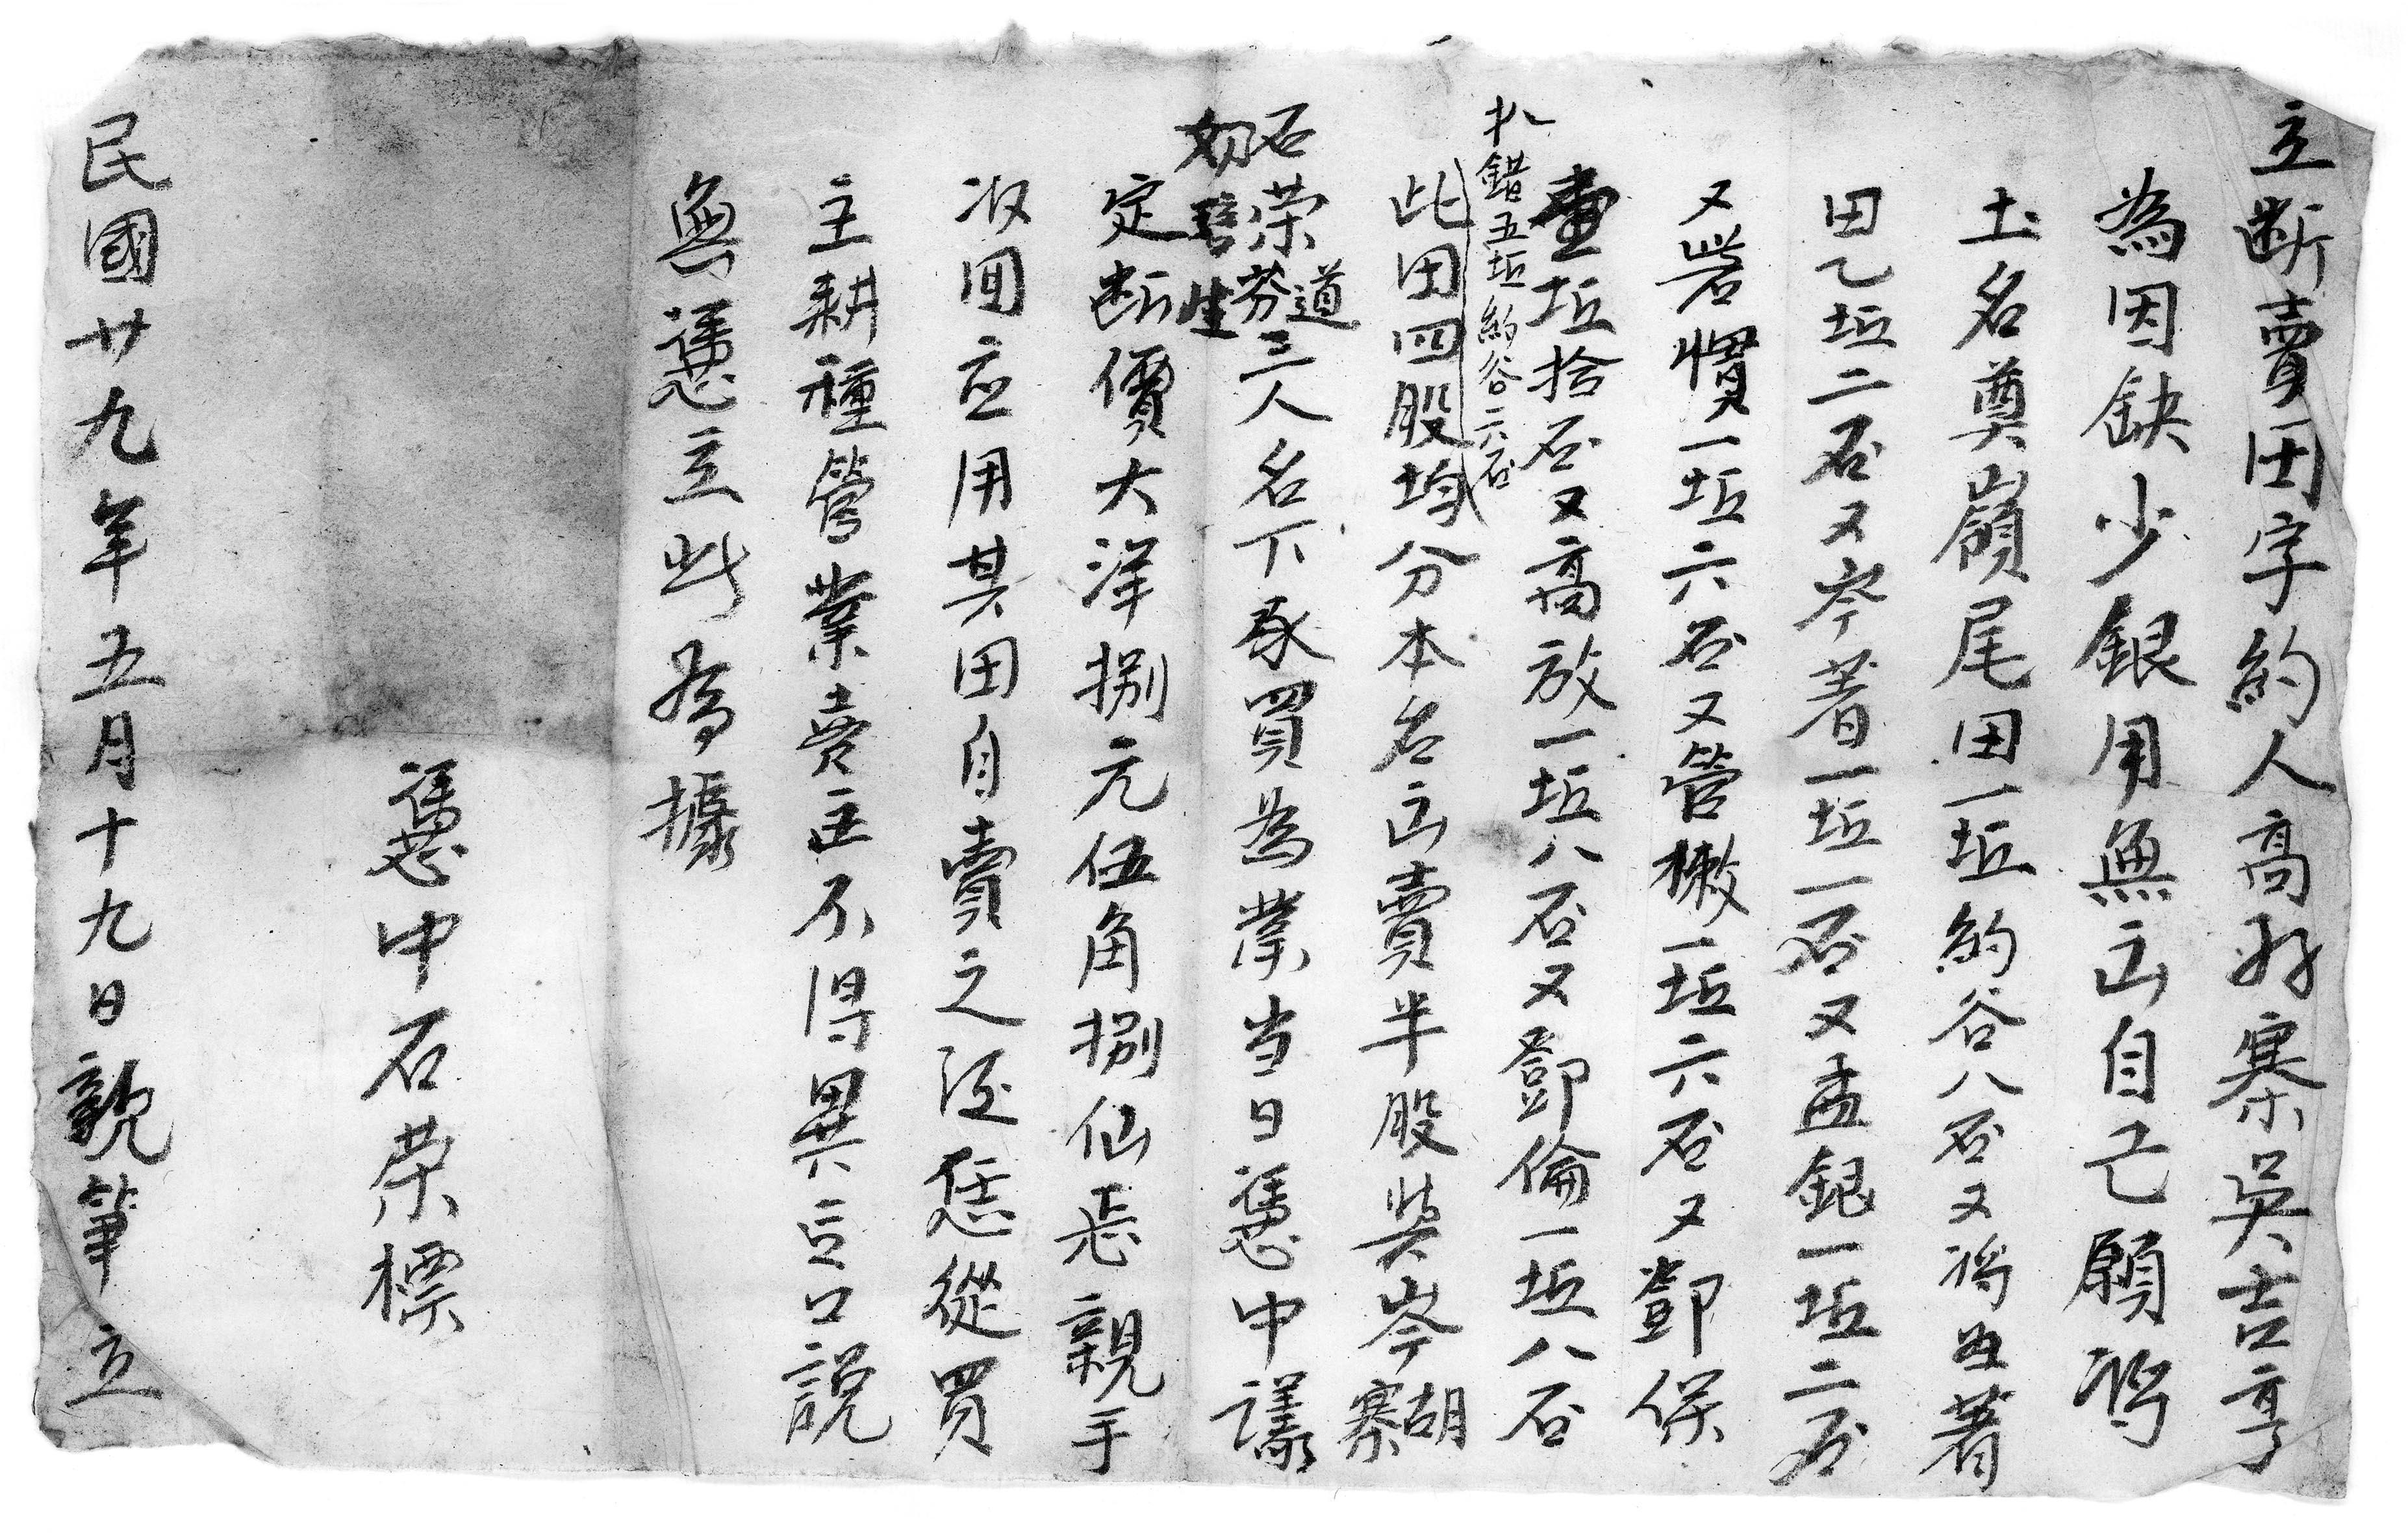 立断賣田字約人高好寨吳吉亨
為因缺少銀用無出自己願將
土名奠嶺尾田一坵約谷八石又得姑著
田乙坵二石又岑著一坵一石又孟銀一坵二石
又岩慣一坵六石又管橄一坵六石又鄧保
壹坵拾石又高放一坵八石又鄧倫一坵八石
扒錯五坵約谷六石
此田四股均分本名出賣半股與岑胡寨
石荣芬道三人名下承買為業当日憑中議
定断價大洋捌元伍角捌仙正親手
收回应用其田自賣之后恁從買
主耕種管業賣主不得異言口說
無憑立此為據
憑中石荣標
民國廿九年五月十九日親筆立